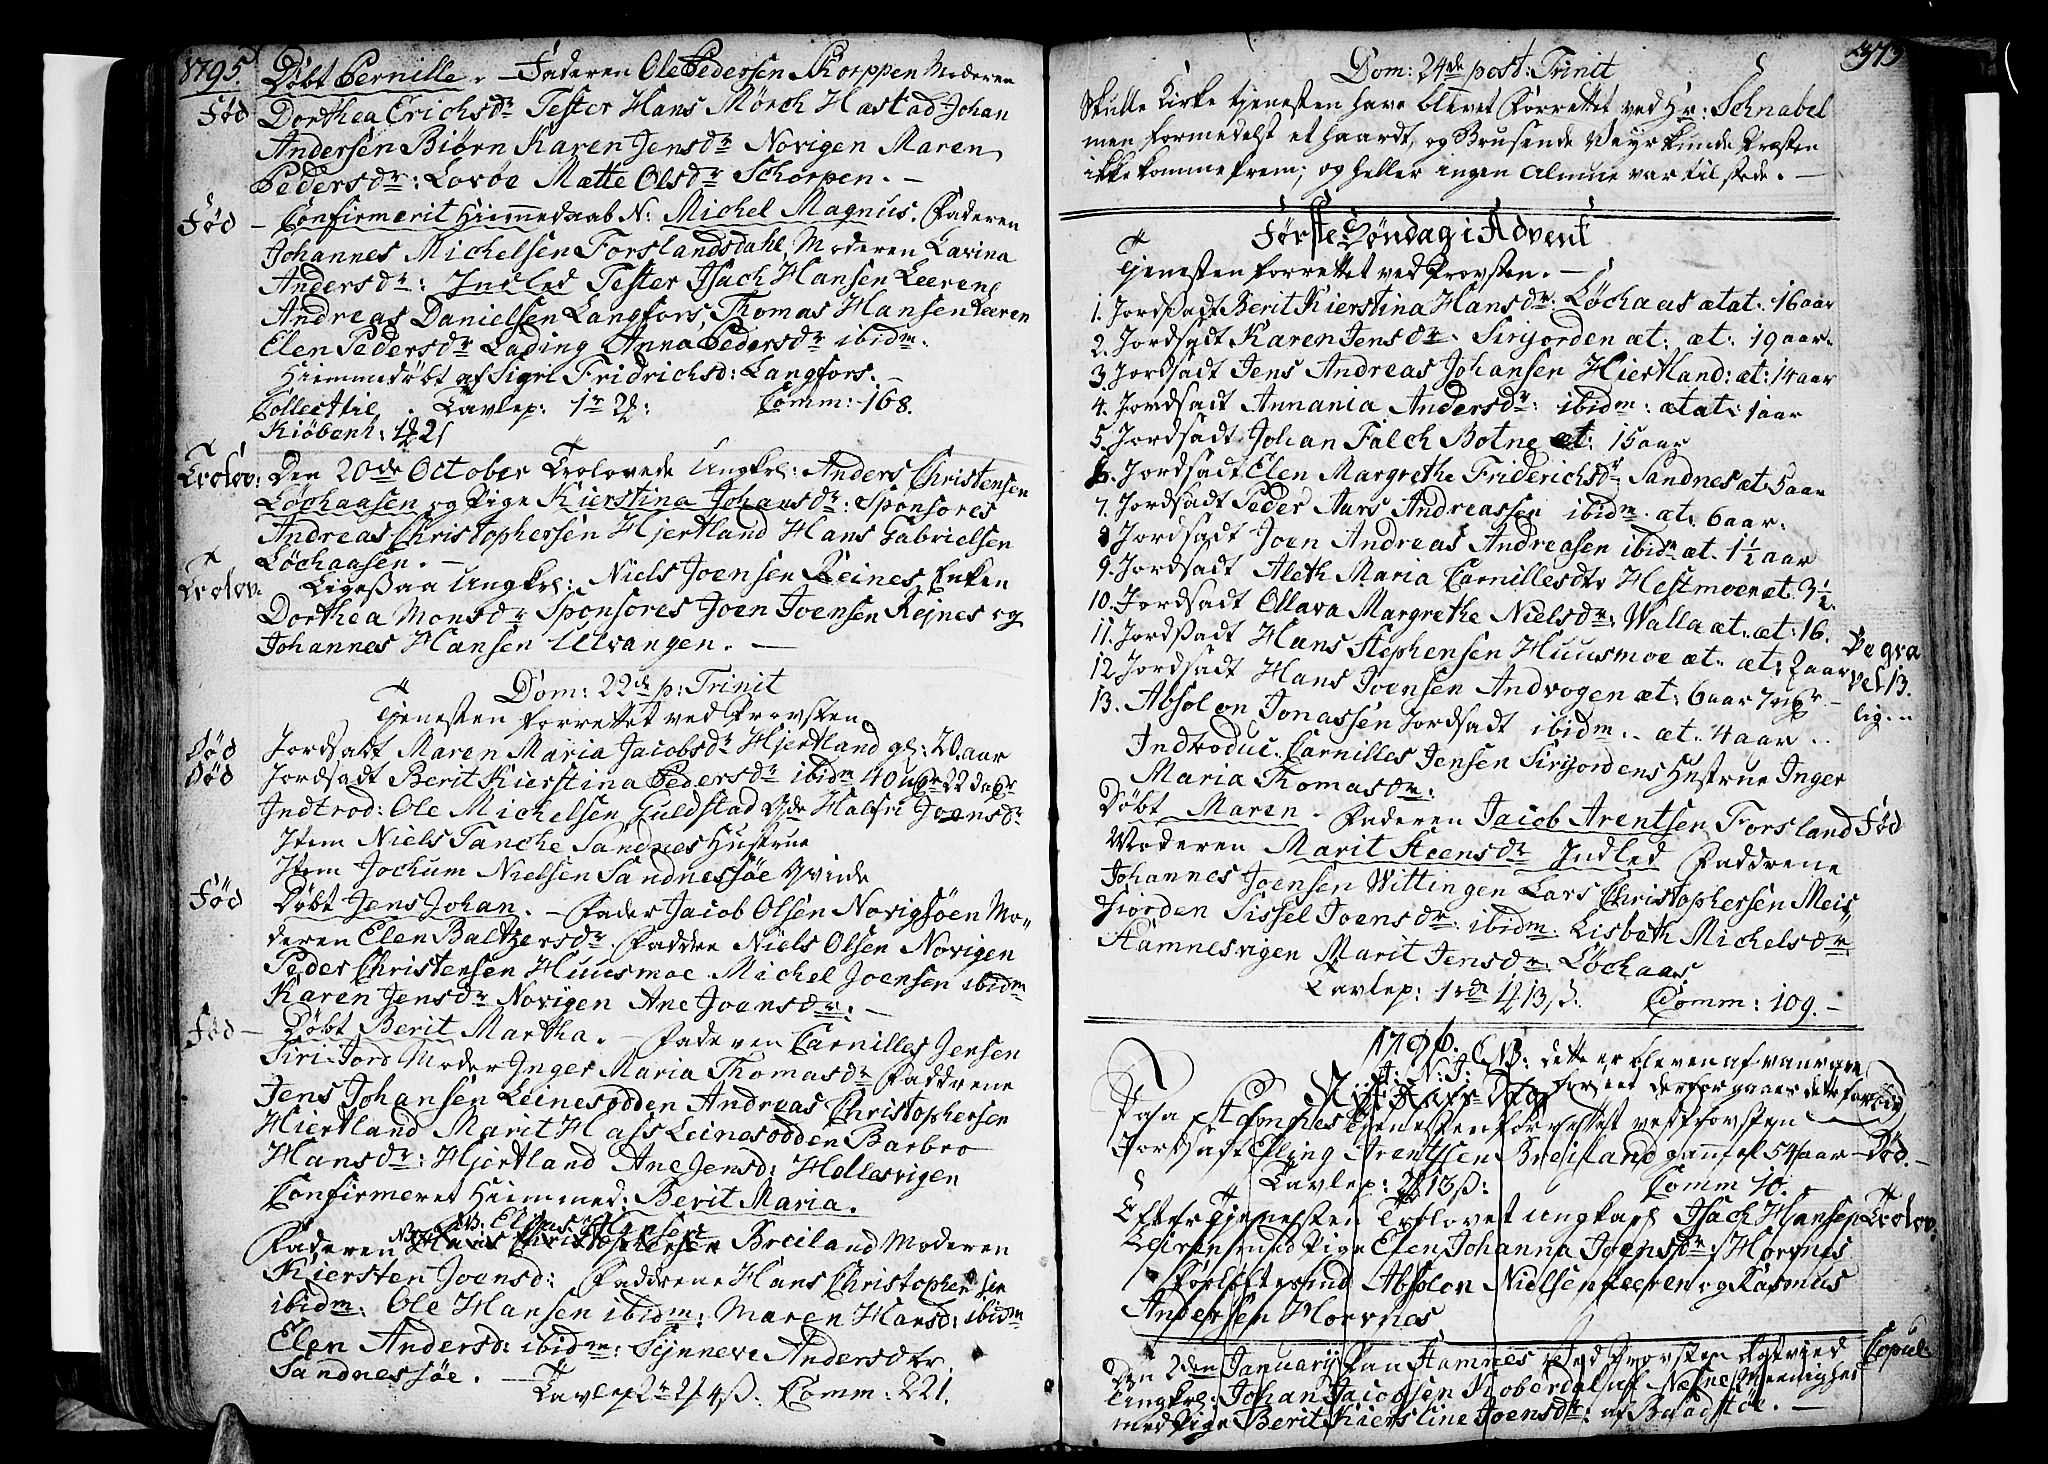 1795.
Døbt Pernille. – Faderen Ole Pedersen Skorppen Moderen
Fød
Dorthea Erichsdr Tester Hans Mörch Hastad Johan
Andersen Biørn Karen Jensdr Novigen Maren
Pedersdr: Lovøe Mætte Olsdr Schorpen. –
Fød – Confirmerit Hiemmedaab N: Michel Magnus. Faderen
Johannes Michelsen Forslandsdahl, Moderen Lavina
Andersdr: Indled Tester Isach Hansen Leeren,
Andreas Danielsen Langfors, Thomas Hansen Leeren
Elen Pedersdr Lading Anna Pedersdr ibidm.
Hiemmedøbt af Sigri Fridrichsd: Langfors.
Collect til Tavlep: Comm: 168.
Kiøbenh:
Trolov: Den 20de October Trolovede Ungkrl: Anders Christensen
Løchaasen og Pige Kierstina Johansdr: Sponsores
Andreas Christophersen Hjertland Hans Gabrielsen
Løchaasen. –
Trolov. Ligesaa Ungkrl: Niels Joensen Reines Enken
Dorthea Monsdr Sponsores Joen Joensen Rejnes og
Johannes Hansen Ulvangen. –
Dom: 22de p: Trinit
Tjenesten forrettet ved Provsten
Død Jordsatt Maren Maria Jacobsdr Hjertland gl: 20. aar
Død Jordsadt Berit Kierstina Pedersdr ibidm
Indtrod: Ole Michelsen Guldstad Qde Halfri Joensdr
Item Niels Tanche Sandnes Hustrue
Item Jochum Nielsen Sandnessøe Qvinde
Fød Døbt Jens Johan. – Fader Jacob Olsen Novigsøen Mo-
deren Elen Baltzersdr. Faddre Niels Olsen Novigen
Peder Christensen Huusmoe Michel Joensen ibidm
Karen Jensdr Novigen Ane Joensdr: –
Fød – Døbt Berit Martha. – Faderen Cornilles Jensen
Siri-Jord Moder Inger Maria Thomasdr Faddrene
Jens Johansen Leinesodden Andreas Christophersen
Hiertland Marit Hass Leinesodden Barbro
Hansdr: Hjertland Ane Jensd: Hellesvigen
Confirmeret Hiemmed: Berit Maria.
Faderen Breiland Moderen
Kiersten Joensd: Faddrene Hans Christophersen
ibidm: Ole Hansen ibidm: Maren Hansd: ibidm
Elen Andersd: ibidm: Synneve Andersdtr
Sandnessøe. –
Tavlep Comm: 221.
373
Dom: 24de post: Trinit
Skulle Kirke tjenesten have blevet forrettet ved Hr: Schnabel
men formedelst et haardt, og Brusende Veyr kunde Præsten
ikke komme frem; og heller ingen Almue var til stede. –
Første Søndag i Advent
Tjenesten forrettet ved Provsten. –
1. Jordsadt Berit Kierstina Hansdr: Løchaas ætat. 16 aar
2. Jordsadt Karen Jensdr. Sirijorden æt. æt: 19 aar.
3. Jordsadt Jens Andreas Johansen Hiertland: æt: 14 aar
4. Jordsadt Annania Andersdr: ibidm: ætat: 1 aar
5. Jordsadt Johan Falch Botne æt: 15 aar
6. Jordsadt Elen Margrethe Friderichsdr Sandnes æt 5 aar
7. Jordsadt Peder Aurs Andreassen ibidm. æt: 6 aar.
8 Jordsadt Joen Andreas Andreasen ibidm æt. 1½ aar
9. Jordsadt Aleth Maria Cornillesdtr Hestmoen æt. 3½
10. Jordsadt Ollava Margrethe Nielsdr: Walla æt: æt: 16.
11. Jordsadt Hans Stephensen Huusmoe æt. æt: 2 aar
12 Jordsadt Hans Joensen Andvogen æt: 6 aar
13. Absolon Jonassen Jordsadt ibidm. – æt. 4 aar
Begra
vel 13.
lig.
Indroduc. Cornilles Jensen Sirijordens Hustrue Inger
Maria Thomasdr:
Døbt Maren – Faderen Jacob Arentsen Forsland Fød
Moderen Marit Steensdr Indled Faddrene
Johannes Joensen Wittingen Lars Christophersen Meis
fiorden Sissel Joensdr: ibidm: Lisbeth Michelsdr
Hamnesvigen Marit Jensdr: Løchaas
Tavlep: Comm: 109. –
1796.
J: N: J: NB: dette er bleven af vanvare
Nyt Aars Dag
Paa Stamnes Tjenesten forrettet ved Provsten
Jordsatt Elling Arentsen Breiland gammel 54 aar – Død. –
Tavlep: Comm 40.
Efter Tjenesten Trolovet Ungkarl Isach Hansen Trolov.
Leiren med Pige Elen Johanna Joensdr: Horvnes
Forloftesmd Absolon Nielsen Leeren og Rasmus
Andersen Horvnes
Den 2den January Paa Stamnes ved Provsten Copul.
Ungkrl: Johan Jacobsen Koberdal af Næsne Meenighed
med Pige Berit Kierstine Joensdr: af Baadstøe. –